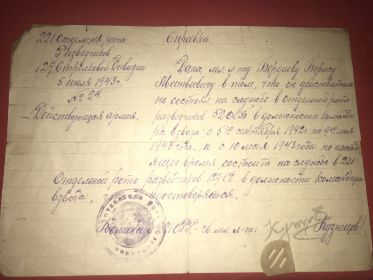 221 Отдельная рота
Разведчиков
127 Стрелковой Дивизии
5 июля 1943 г.
№ 24.
Действующая армия.
Справка.
Дана мл. л-ту Борису
Матвеевичу в том, что он действитель
но состоял на службе в отдельной роте
разведчиков 52 в должности команди
ра взвода с 5го сентября 1942 г. по
1943 года и с 10 мая 1943 года по настоя
щее время состоит на службе в 221
Отдельной роте разведчиков 127 в должности командира
взвода,
Командир мл. л-т: Кузнецов